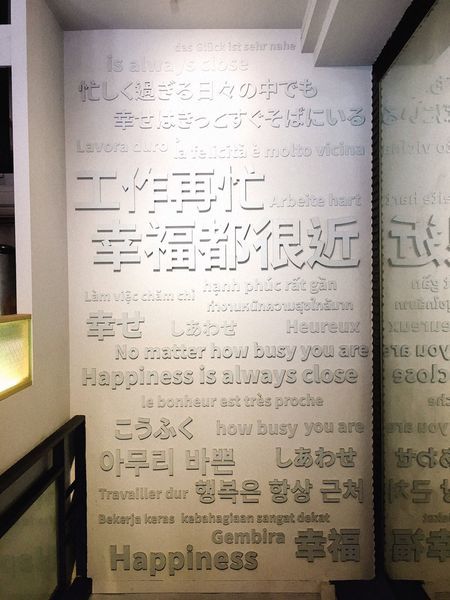 das Glück ist sehr nahe
is always close
忙しく過ぎる日々の中でも
幸せはきっとすぐそばにいる
Lavora duro la felicità è molto vicina
工作再忙 Arbeite hart
幸福都很近
hạnh phúc rất gần
Làm việc chăm chỉ
ทำงานหนักความสุขใกล้มาก
幸せ しあわせ Heureux
No matter how busy you are
Happiness is always close
le bonheur est très proche
こうふく how busy you are
아무리 바쁜 しあわせ
Travailler dur 행복은 항상 근처
Bekerja keras kebahagiaan sangat dekat
Gembira 幸福
Happiness